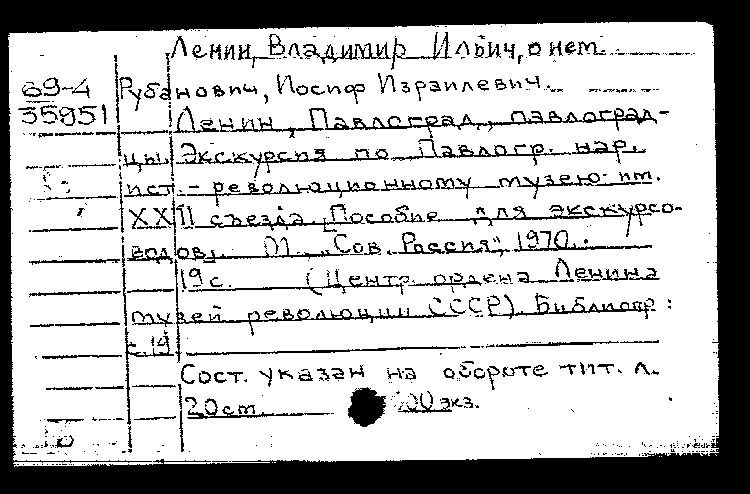 Ленин, Владимир Ильич, о нем.
69-4
35951
Рубанович, Иосиф Израилевич.
Ленин, Павлоград, павлоград-
цы. Экскурсия по Павлогр. нар.
ист.-революционному музею им.
XXII съезда. [Пособие для экскурсо-
водов]. М., "Сов. Россия", 1970.
19 с. (Центр. ордена Ленина
музей революции СССР). Библиогр:
с. 19
Сост. указан на обороте тит. л.
20 см. 00 экз.